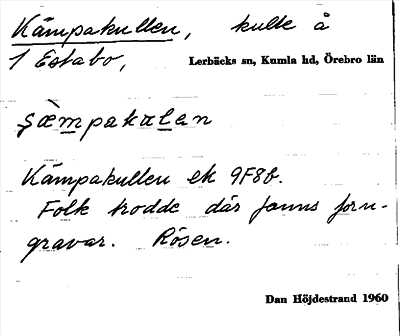 Kämpakullen, kulle å
1 Estabo, Lerbäcks sn, Kumla hd, Örebro län
şæmpakalan
Kämpakullen ek 9F8b.
Folk trodde där fanns forn-
gravar. Rösen.
Dan Höjdestrand 1960